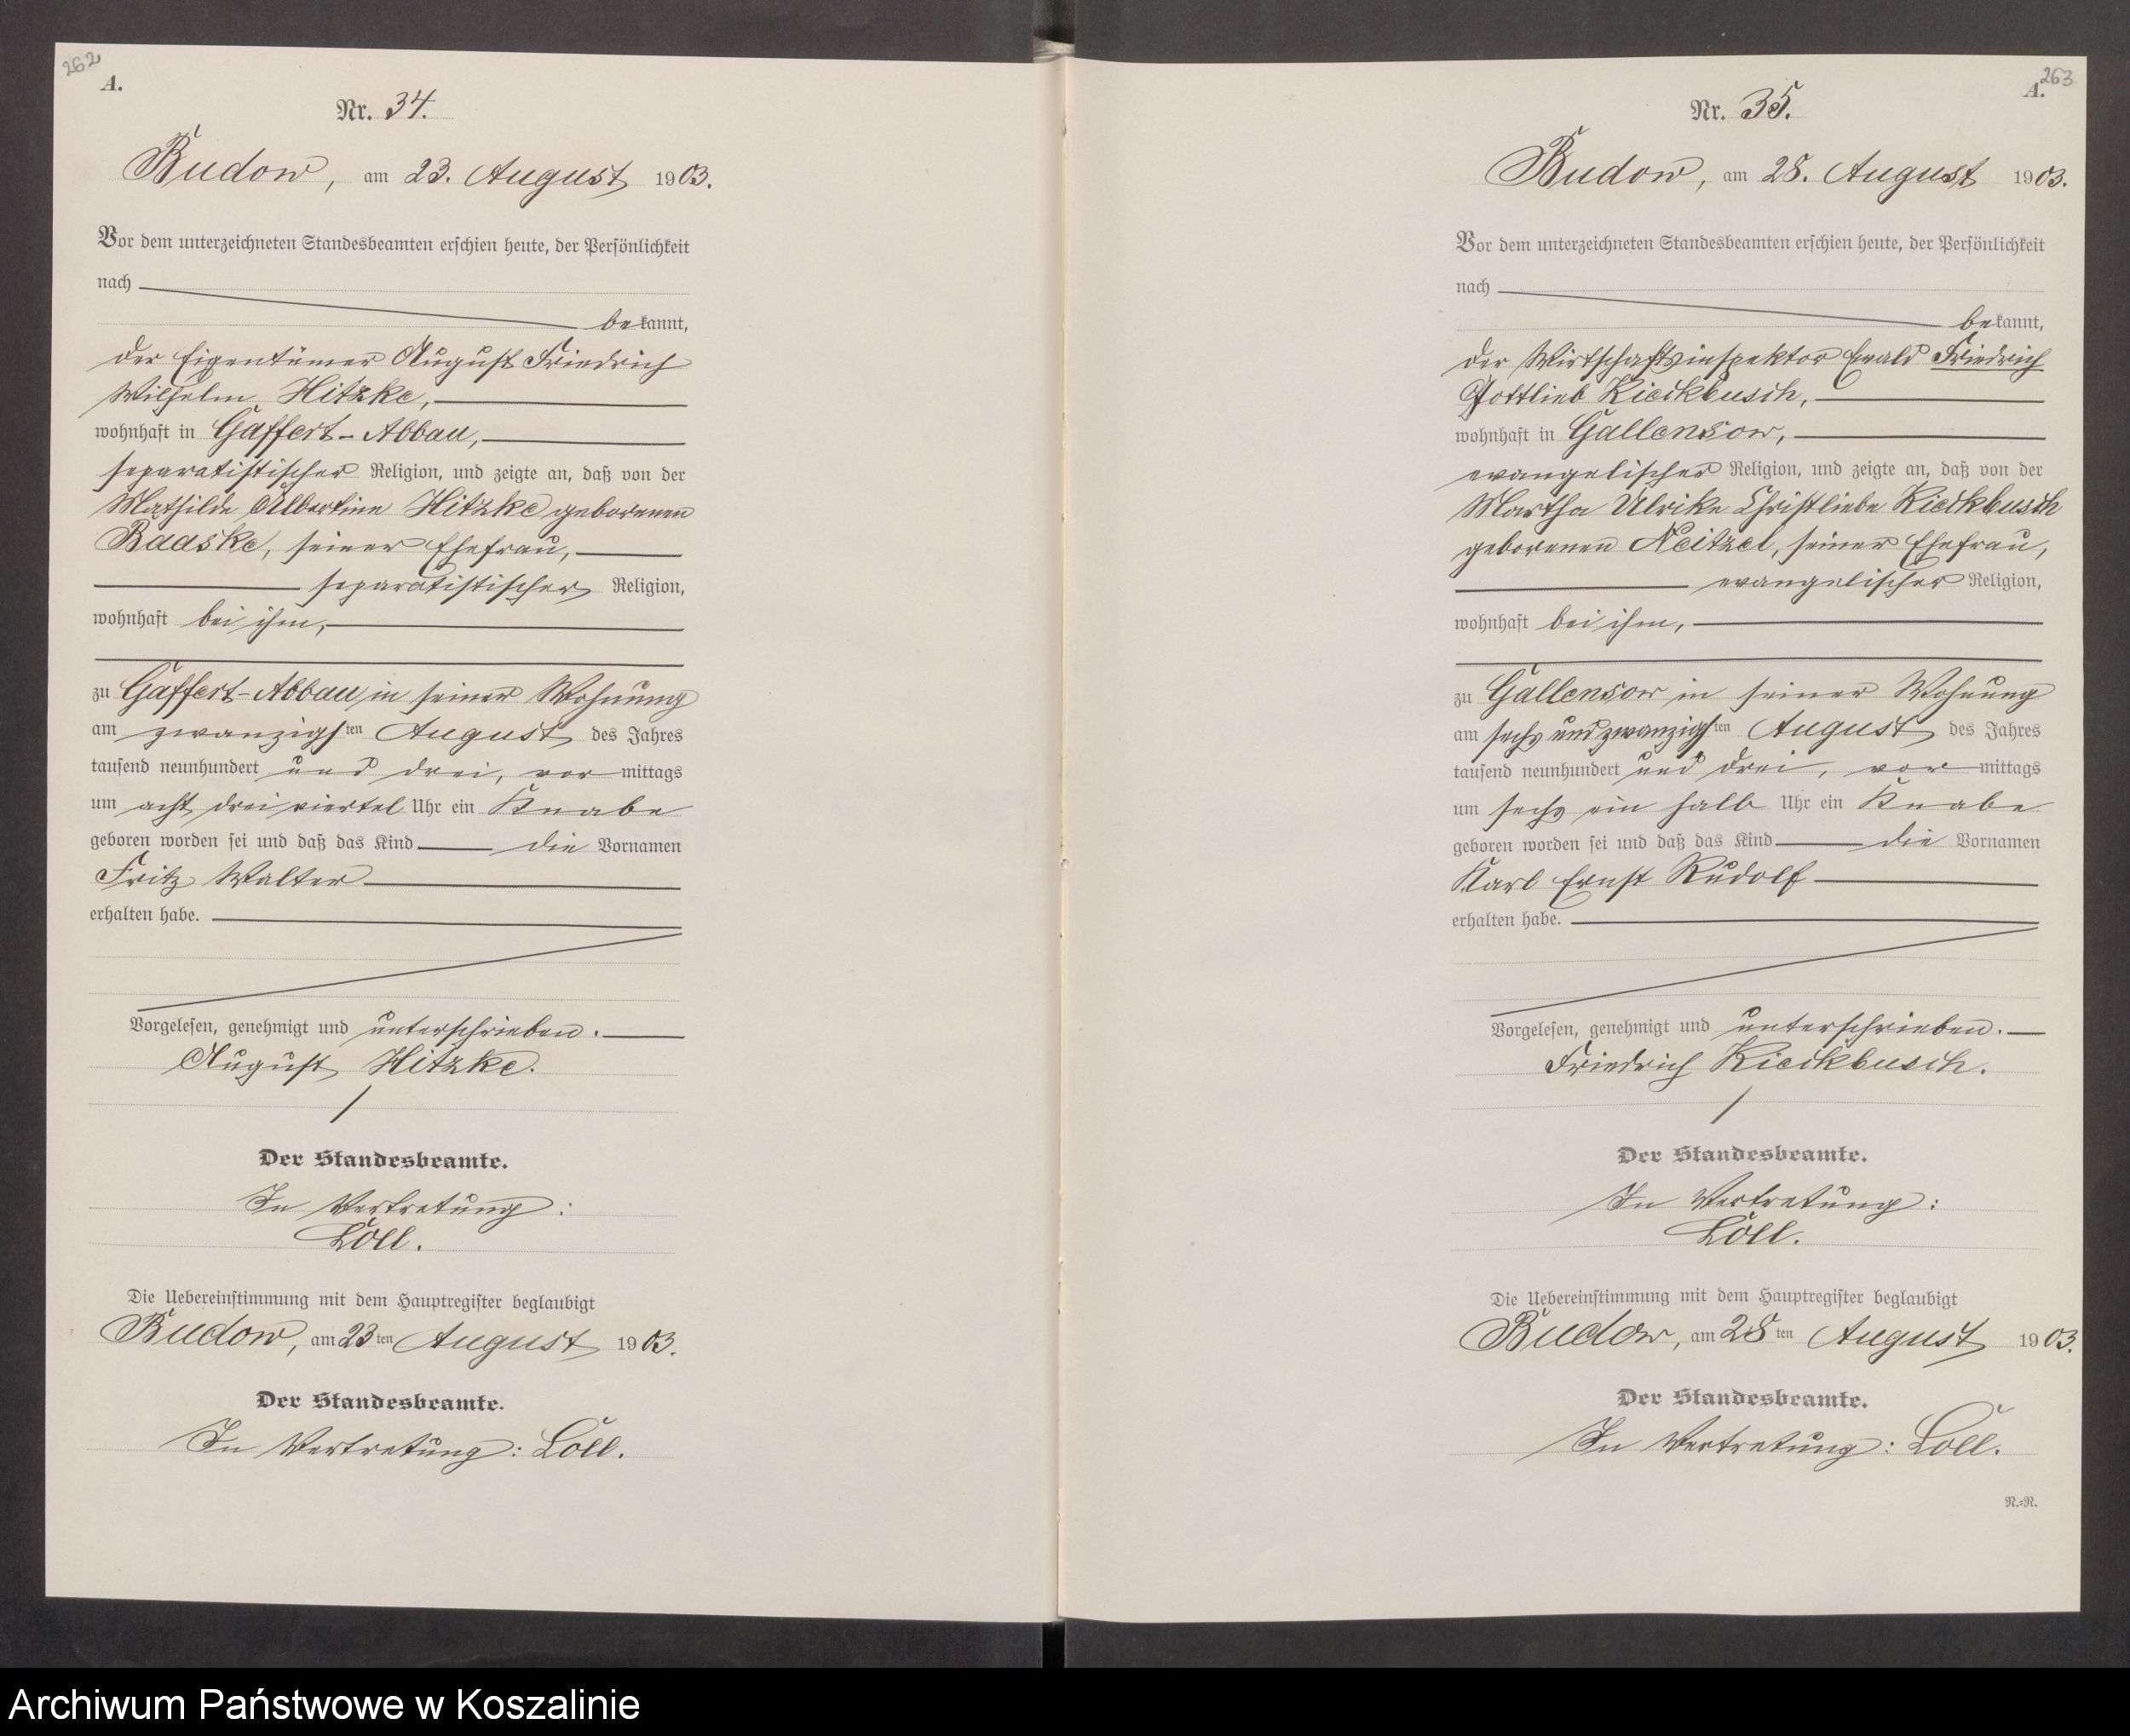 262
A.
Nr. 34.
Budow, am 23. August 1903.
Vor dem unterzeichneten Standesbeamten erschien heute, der Persönlichkeit
nach
bekannt,
der Eigentümer August Friedrich
Wilhelm Hitzke,
wohnhaft in Gaffert-Abbau,
separatistischer Religion, und zeigte an, daß von der
Mathilde Albertine Hitzke geborenen
Baaske, seiner Ehefrau,
separatistischer Religion,
wohnhaft bei ihm,
zu Gaffert-Abbau in seiner Wohnung
am zwanzigsten August des Jahres
tausend neunhundert und drei, vormittags
um acht drei viertel Uhr ein Knabe
geboren worden sei und daß das Kind die Vornamen
Fritz Walter
erhalten habe.
Vorgelesen, genehmigt und unterschrieben.
August Hitzke.
Der Standesbeamte.
In Vertretung:
Löll.
Die Uebereinstimmung mit dem Hauptregister beglaubigt
Budow, am 23ten August 1903.
Der Standesbeamte.
In Vertretung: Löll.
263
A.
Nr. 35.
Budow, am 28. August 1903.
Vor dem unterzeichneten Standesbeamten erschien heute, der Persönlichkeit
nach
bekannt,
der Wirtschaftsinspektor Ewald Friedrich
Gottlieb Kieckbusch,
wohnhaft in Gallensow,
evangelischer Religion, und zeigte an, daß von der
Martha Ulrike Christliebe Kieckbusch
geborenen Neitzel, seiner Ehefrau,
evangelischer Religion,
wohnhaft bei ihm,
zu Gallensow in seiner Wohnung
am sechs und zwanzigsten August des Jahres
tausend neunhundert und drei, vormittags
um sechs ein halb Uhr ein Knabe
geboren worden sei und daß das Kind die Vornamen
Karl Ernst Rudolf
erhalten habe.
Vorgelesen, genehmigt und unterschrieben.
Friedrich Kieckbusch.
Der Standesbeamte.
In Vertretung:
Löll.
Die Uebereinstimmung mit dem Hauptregister beglaubigt
Budow, am 28ten August 1903.
Der Standesbeamte.
In Vertretung: Löll.
N.=R.
Archiwum Państwowe w Koszalinie